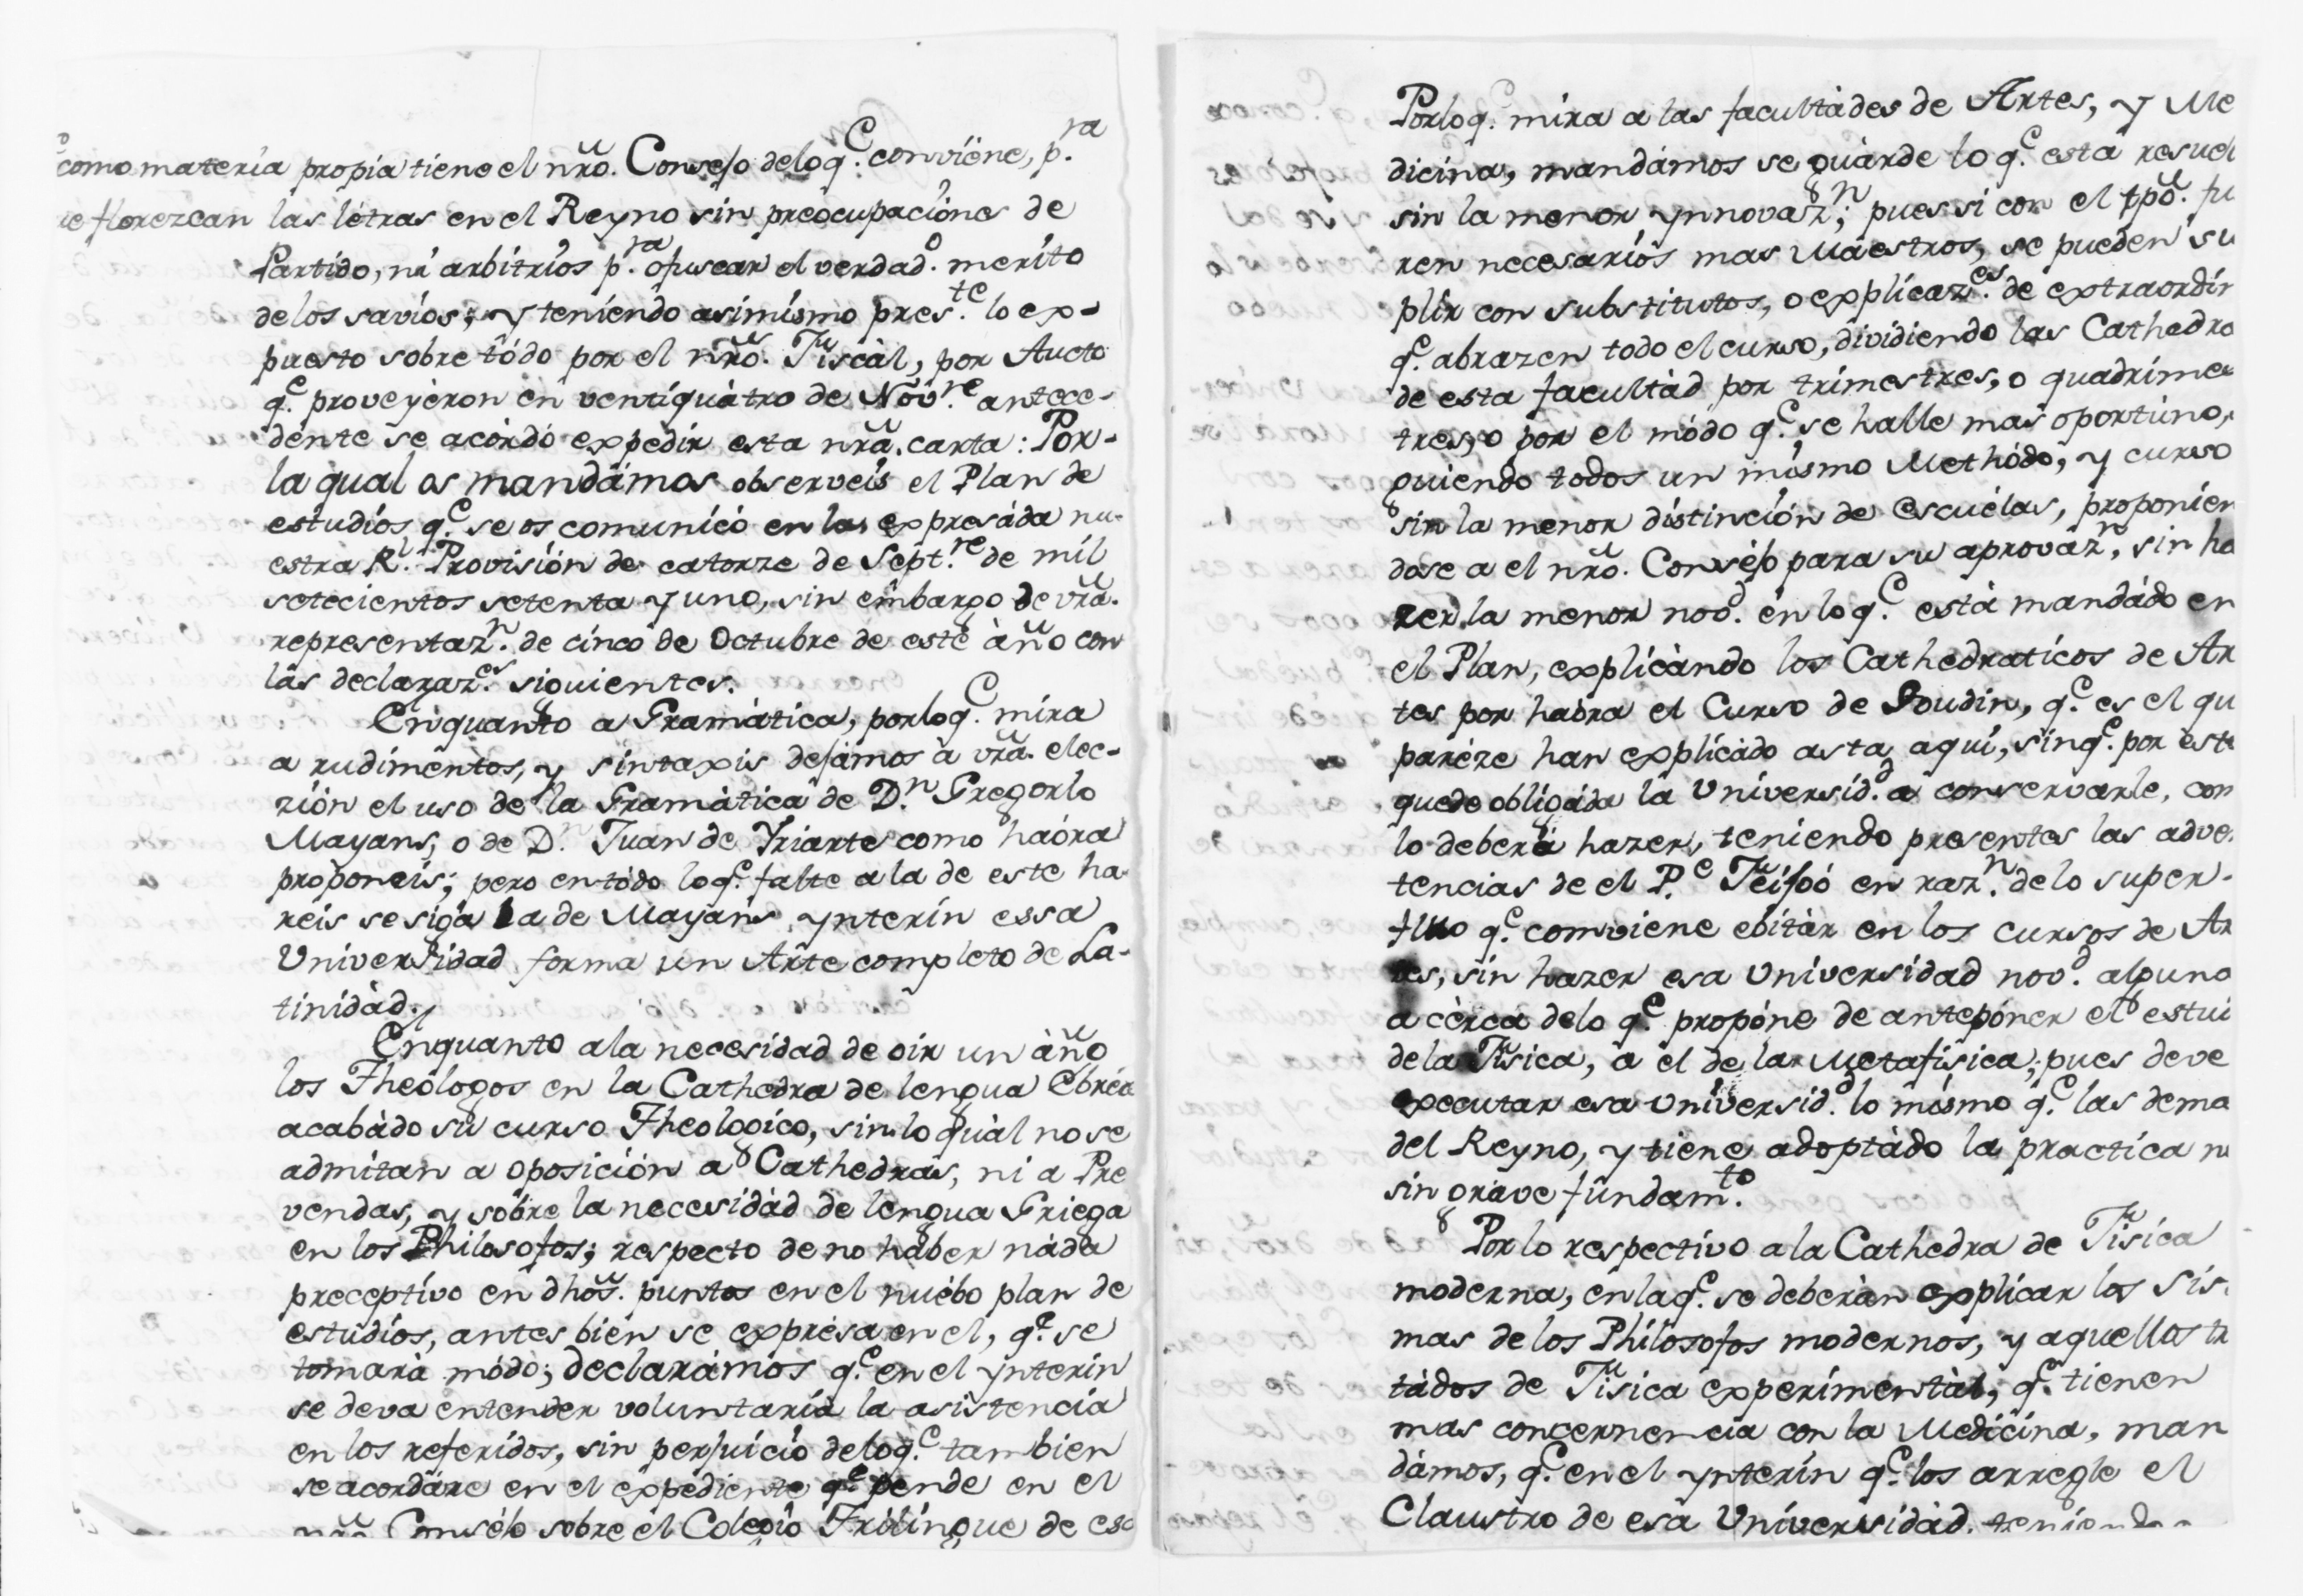 como materia propia tiene el nrõ. Consejo delo q.e conviene, p.ra
florezcan las letras en el Reyno sin preocupaciónes de
Partido, ni arbitrios p.ra ofuscar el verdad.o merito
delos savios; y teniendo asimismo pres.te lo ex-
puesto sobre tódo por el nrõ. Fiscàl, por Aucto
q.e proveyèron en ventiquàtro de Nov.re antece-
dente se acòrdó expedir esta nrã. carta: Por-
la qual os mandámos observeis el Plan de
estudios q.e se os comunicó en las expresáda nu-
estra R.l Provisión de catorze de Sept.re de mil
setecientos setenta y uno, sin embargo de vrã.
representaz.n de cinco de Octubre de este año con
las declaraz.es siguientes.
Enquanto a Gramàtica, porloq.e mira
a rudimentos, y sintaxis dejámos à vrã. elec-
zión el uso de la Gramàtica de D.n Gregorio
Mayans, o de D.n Juan de Yriarte como haóra
proponeis; pero en tódo loq.e falte a la de este ha-
reis se siga la de Mayans ynterin essa
Universidad forma un Arte completo de La-
tinidàd.
Enquanto ala necesidad de oir un año
los Theólogos en la Cathedra de lengua Ebréa
acabàdo su curso Theologico, sin lo quàl no se
admitan a oposición a Cathedras, ni a Pre
vendas, y sobre la necesidàd de lengua Griega
en los Philosofos; respecto de no haber nàda
preceptivo en dhõs. puntos en el nuebo plan de
estudios, antes bien se exprèsa en el, q.e se
tomarà módo; declarámos q.e en el ynterin
se deva entender voluntaria la asistencia
en los referidos, sin perjuicio deloq.e tambien
se acordáre en el expediente q.e pende en el
nrõ. Consejo sobre el Colegio Trilingue de esa
Porloq.e mira a las facultàdes de Artes, y Me
dicina, mandámos se guàrde lo q.e està resuel
sin la menor ynnovaz.n; pues si con el tpõ. fu
ren necesarios mas Maestros, se pueden su
plir con substitutos, o explicaz.es de extraordin
q.e abrazen todo el curso, dividiendo las Cathedra
de esta facultàd por trimestres, o quadrimes
tres, o por el módo q.e se halle mas oportùno,
guiendo todos un mismo Methódo, y curso
sin la menor distinción de Escuélas, proponien
dose a el nrõ. Consejo para su aprovaz.n, sin ha
zer la menor nov.d en lo q.e està mandádo en
el Plan, explicàndo los Cathedraticos de Ar
tes por haóra el Curso de Goudin, q.e es el qu
paréze han explicàdo asta aqui, sinq.e por este
quede obligáda la Universid.d a conservarle, com
lo deberá hazer, teniendo presentes las adver
tencias de el P.e Feijoó en raz.n delo super-
fluo q.e comviene ebitàr en los cursos de Ar
tes, sin hazer esa Universidad nov.d alguna
acèrca delo q.e propóne de antepóner el estui
dela Fisica, a el de la Metafisica; pues deve
executar esa Universid.d lo mismo q.e las dema
del Reyno, y tiene adoptàdo la practica n
sin gràve fundam.to
Porlo respectivo ala Cathedra de Fisica
moderna, enlaq.e se deberàn explicar los Sis.
mas de los Philosofos modernos, y aquellos tr
tádos de Fisica experimentàl, q.e tienen
mas concernencia con la Medicina, man
dámos, q.e en el ynterin q.e los arregle el
Claustro de esa Universidàd. teniendo